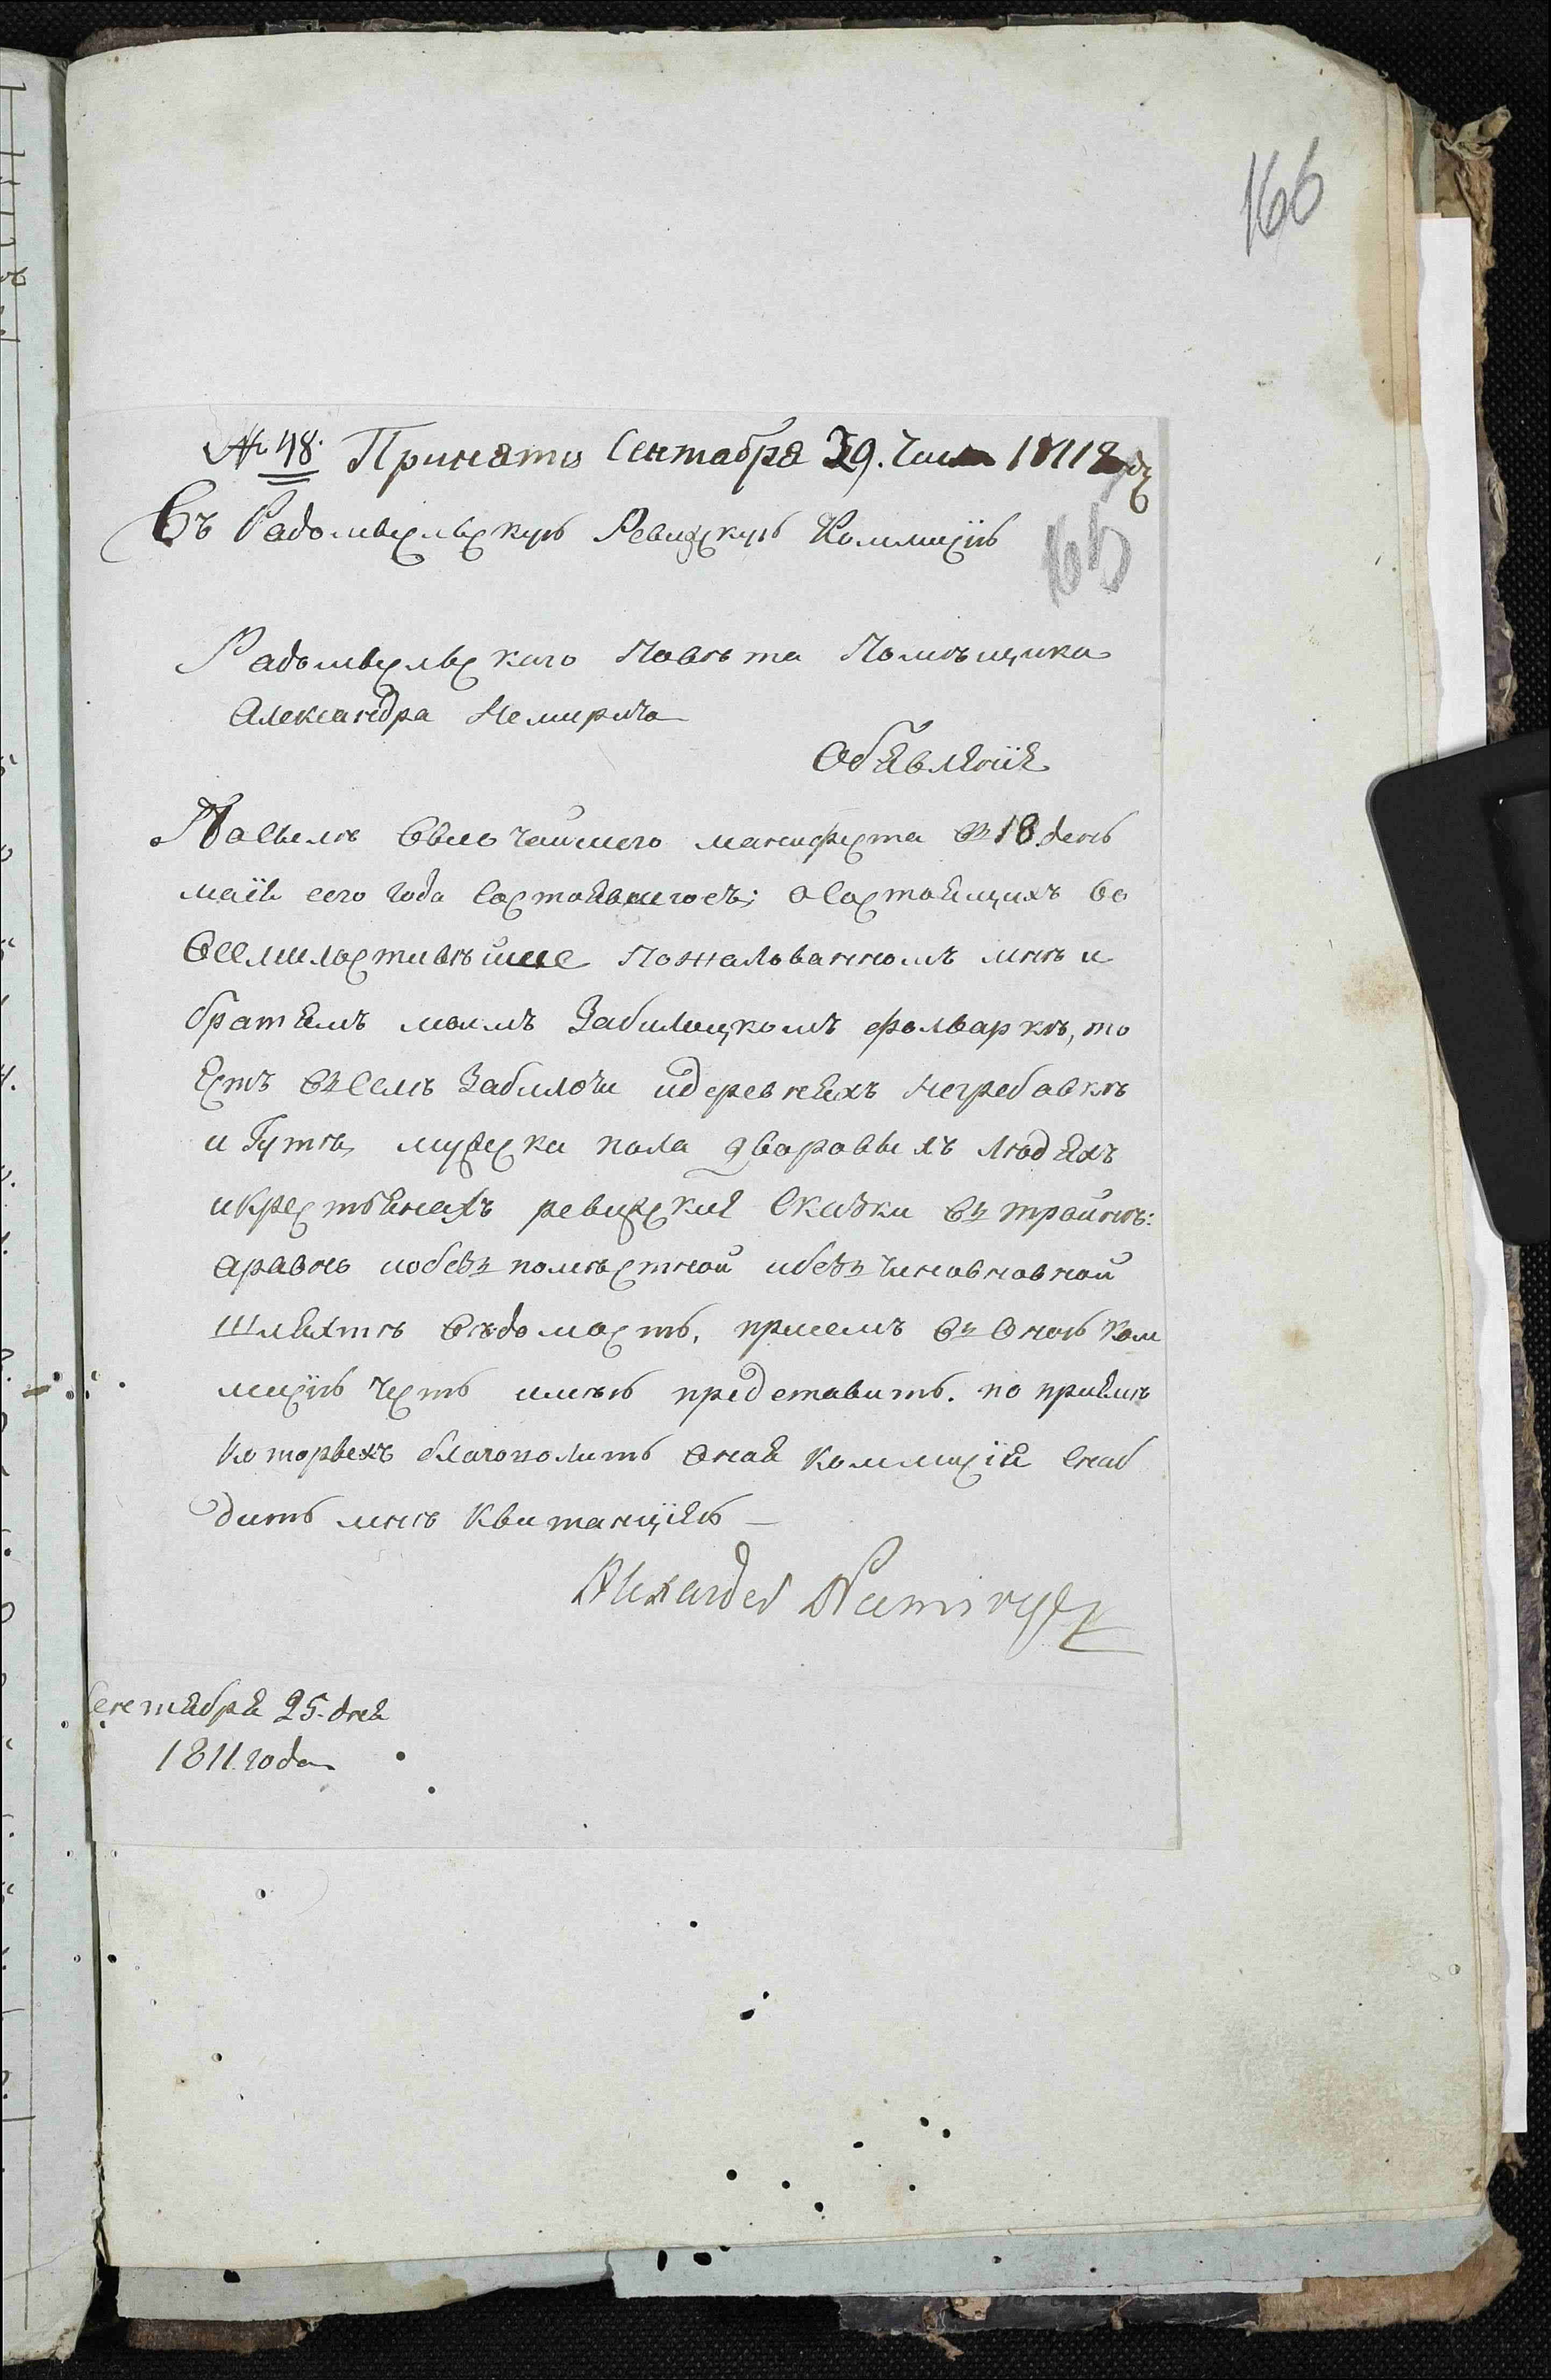 166
№ 48. Принято Сентабра 29. Числа 1811 году
Въ Радомысльскую Ревизскую Коммисїю
165
Радомысльского Повѣта Помѣщика
Александра Немирича
Объявленїе
Посылѣ Высочайшего манифеста въ 18. день
маїя сего года состоявшегось; о состоящихъ во
Всемилостивѣйше пожалованномъ мнѣ и
братьямъ моимъ Забилоцкомъ фольваркѣ, то
Естъ въ Селѣ Забилочи и деревняхъ Негребовкѣ
и Гутѣ, мужска пола дворовыхъ людяхъ
и крестьянахъ ревизскія Сказки въ тройнѣ:
а равно и обезъ помѣстной и безъ чиновновной
шляхтѣ Вѣдомость, при семъ въ Оною Ком
мисїю честь имѣю представить. по приемѣ
которыхъ благоволить Оная Коммисїя снаб
дить мнѣ Квитанцїею —
Alexander Niemirycz
Сентября 25. дня
1811. года